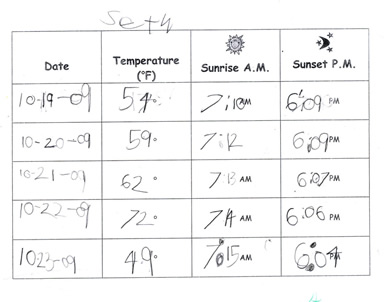 Seth
Date Temperature (°F) Sunrise A.M. Sunset P.M.
10-19-09 54° 7:10 AM 6:09 PM
10-20-09 59° 7:12 6:09 PM
10-21-09 62° 7:13 AM 6:07 PM
10-22-09 72° 7:14 AM 6:06 PM
1023-09 49° 7:15 AM 6:04 PM